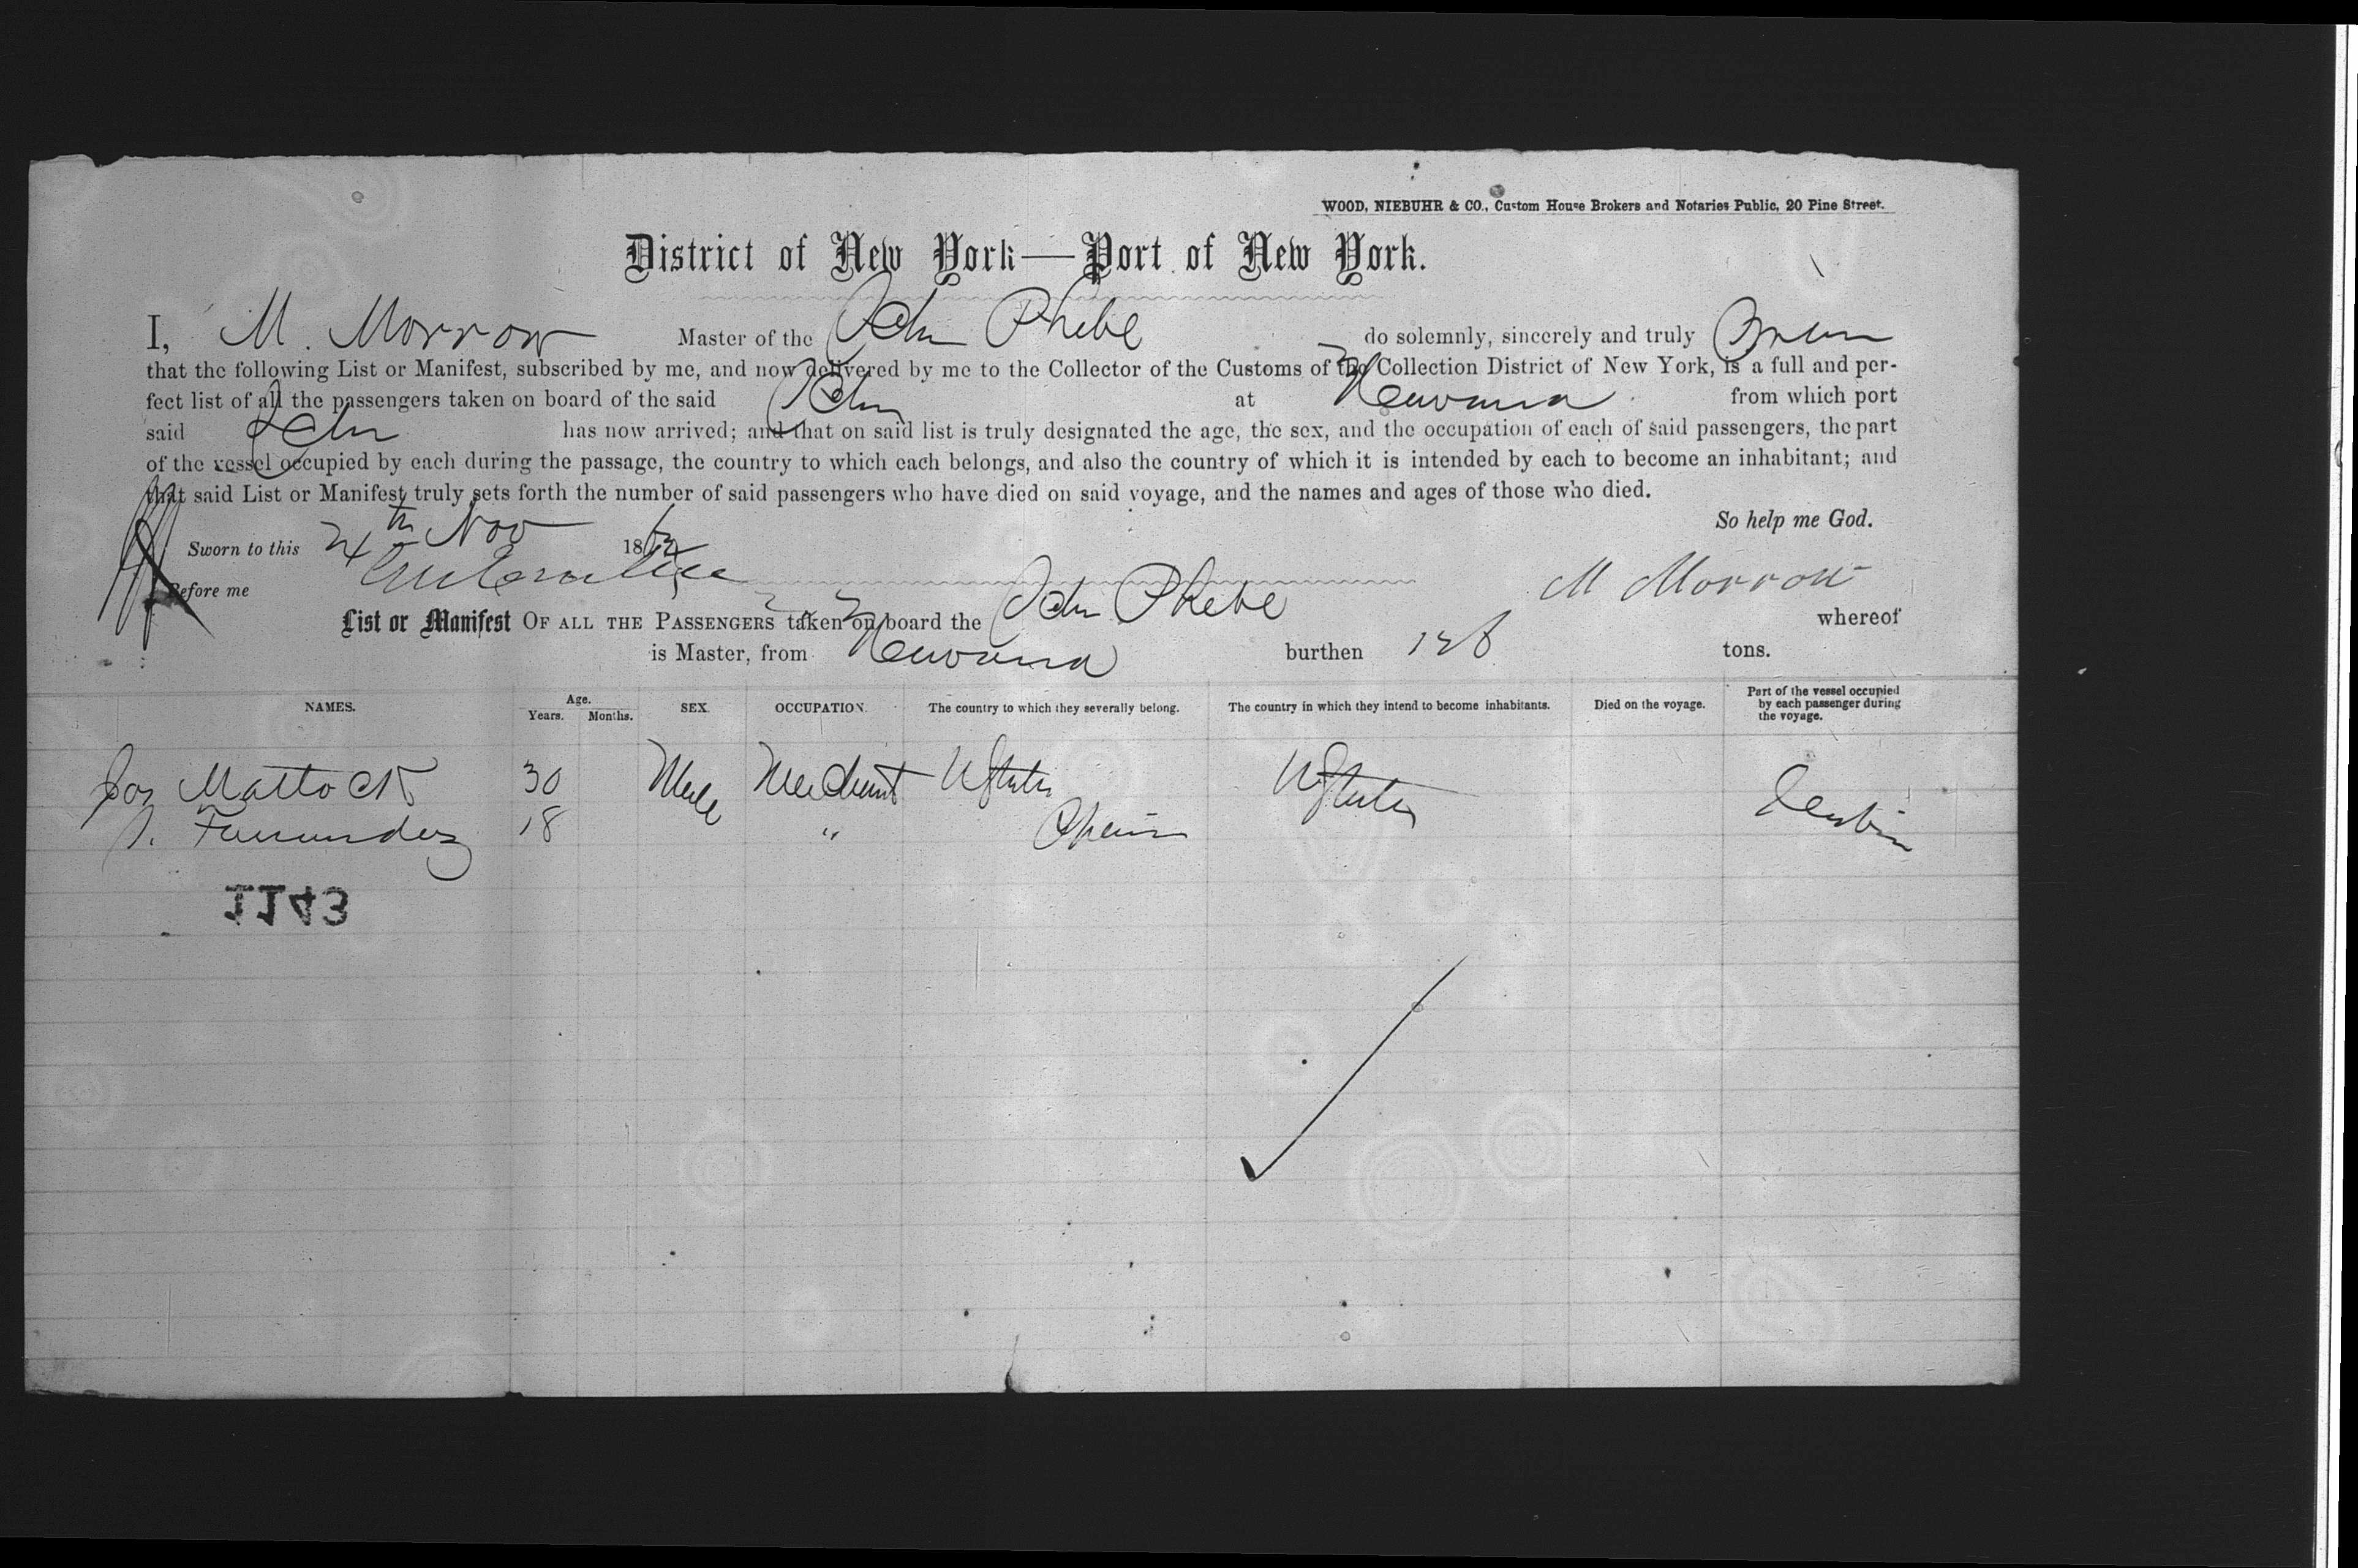 WOOD, NIEBUHR & CO., Custom House Brokers and Notaries Public, 20 Pine Street.
District of New York—Port of New York.
I, M. Morrow Master of the Schr Phebe do solemnly, sincerely and truly Swear
that the following List or Manifest, subscribed by me, and now delivered by me to the Collector of the Customs of the Collection District of New York, is a full and per-
fect list of all the passengers taken on board of the said Schr at Havana from which port
said Schr has now arrived; and that on said list is truly designated the age, the sex, and the occupation of each of said passengers, the part
of the vessel occupied by each during the passage, the country to which each belongs, and also the country of which it is intended by each to become an inhabitant; and
that said List or Manifest truly sets forth the number of said passengers who have died on said voyage, and the names and ages of those who died.
So help me God.
Sworn to this 24th Nov 186
Before me M Morrow
List or Manifest OF ALL THE PASSENGERS taken on board the Schr Phebe whereof
is Master, from Havana burthen 128 tons.
NAMES. Age. Years. Months. SEX. OCCUPATION. The country to which they severally belong. The country in which they intend to become inhabitants. Died on the voyage. Part of the vessel occupied by each passenger during the voyage.
Jos Mattock 30 Male Merchant U States U States Cabin
Fernandez 18 " Spain
1143